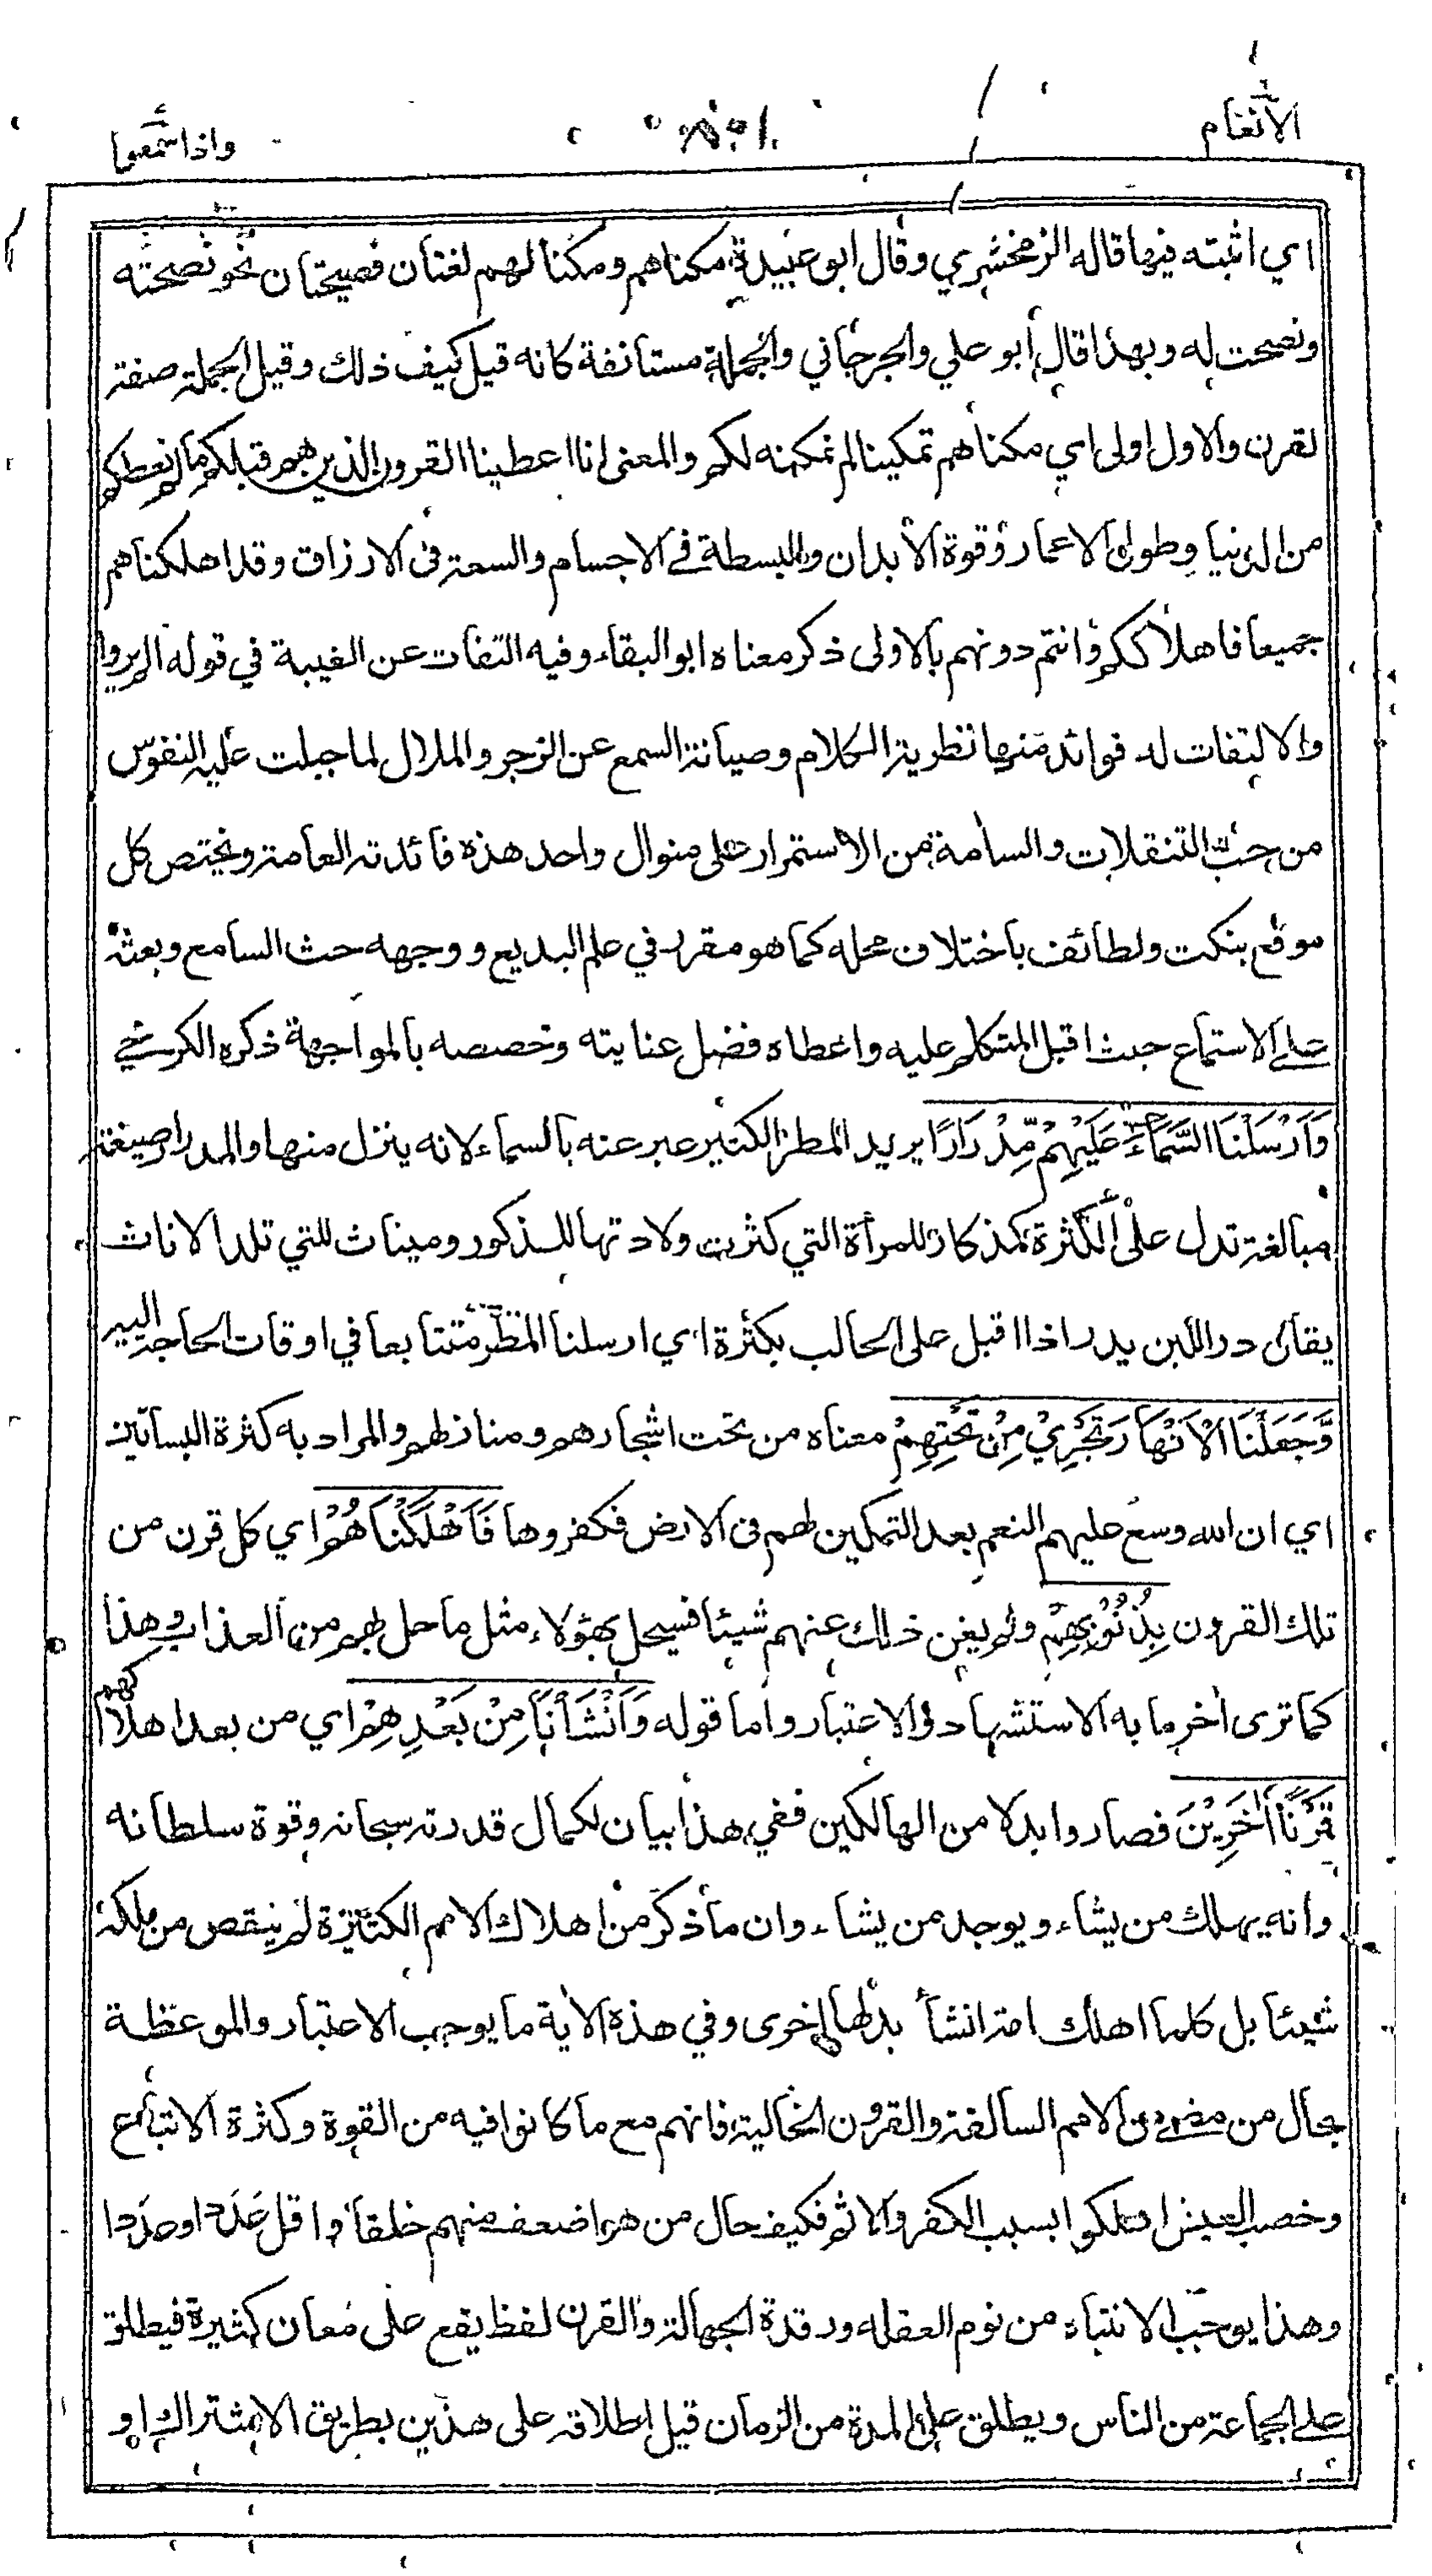 الانعام
واذا سمعوا
اي اثبته فيها قاله الزمخشري وقال ابو عبيدة مكناهم ومكنا لهم لغتان فصيحتان نحو نصحته
ونصحت له وبهذا قال أبو علي والجرجاني والجملة مستأنفة كانه قيل كيف ذلك وقيل الجملة صفة
لقرن والاول اولى اي مكناهم تمكينا لم نمكنه لكم والمعنى انا اعطينا القرون الذين هم قبلكم ما لم نعطكم
من الدنيا وطول الاعمار وقوة الأبدان والبسطة في الاجسام والسعة في الارزاق وقد اهلكناهم
جميعا فاهلاككم وانتم دونهم بالاولى ذكر معناه ابو البقاء وفيه التفات عن الغيبة في قوله الم يروا
والالتفات له فوائد منها تطرية الكلام وصيانة السمع عن الزجر والملال لما جبلت عليه النفوس
من حبّ التنقلات والسامة من الاستمرار على منوال واحد هذه فائدته العامة ويختص كل
موقع بنكت ولطائف باختلاف محله كما هو مقرر في علم البديع ووجهه حث السامع وبعثه
على الاستماع حيث اقبل المتكلم عليه واعطاه فضل عنايته وخصصه بالمواجهة ذكره الكرخي
وَاَرْسَلْنَا السَّمَآءَ عَلَيْهِمْ مِّدْرَارًا يريد المطر الكثير عبر عنه بالسماء لانه ينزل منها والمدرار صيغة
مبالغة تدل على الكثرة كمذكار للمرأة التي كثرت ولادتها للذكور وميناث للتي تلد الاناث
يقال در اللبن يدر اذا اقبل على الحالب بكثرة اي ارسلنا المطر متتابعا في اوقات الحاجة اليه
وَّجَعَلْنَا الْاَنْهَارَ تَجْرِيْ مِنْ تَحْتِهِمْ معناه من تحت اشجارهم ومنازلهم والمراد به كثرة البساتين
اي ان الله وسع عليهم النعم بعد التمكين لهم في الارض فكفروها فَاَهْلَكْنَاهُمْ اي كل قرن من
تلك القرون بِذُنُوْبِهِمْ ولم يغن ذلك عنهم شيئا فسيحل بهؤلاء مثل ما حل بهم من العذاب وهذا
كما ترى اخر ما به الاستشهاد والاعتبار واما قوله وَاَنْشَأْنَا مِنْ بَعْدِهِمْ اي من بعد اهلاكهم
قَرْنًا اٰخَرِيْنَ فصاروا بدلا من الهالكين ففي هذا بيان لكمال قدرته سبحانه وقوة سلطانه
وانه يهلك من يشاء ويوجد من يشاء وان ما ذكر من اهلاك الامم الكثيرة لم ينقص من ملكه
شيئا بل كلما اهلك امة انشأ بدلها اخرى وفي هذه الاية ما يوجب الاعتبار والموعظة
بحال من مضى من الامم السالفة والقرون الخالية فانهم مع ما كانوا فيه من القوة وكثرة الاتباع
وخصب العيش اهلكوا بسبب الكفر والاثم فكيف حال من هو اضعف منهم خلقا واقل عَدَدا وعُدَدا
وهذا يوجب الانتباه من نوم الغفلة ورقدة الجهالة والقرن لفظ يقع على معان كثيرة فيطلق
على الجماعة من الناس ويطلق على المدة من الزمان قيل اطلاقه على هذين بطريق الاشتراك او